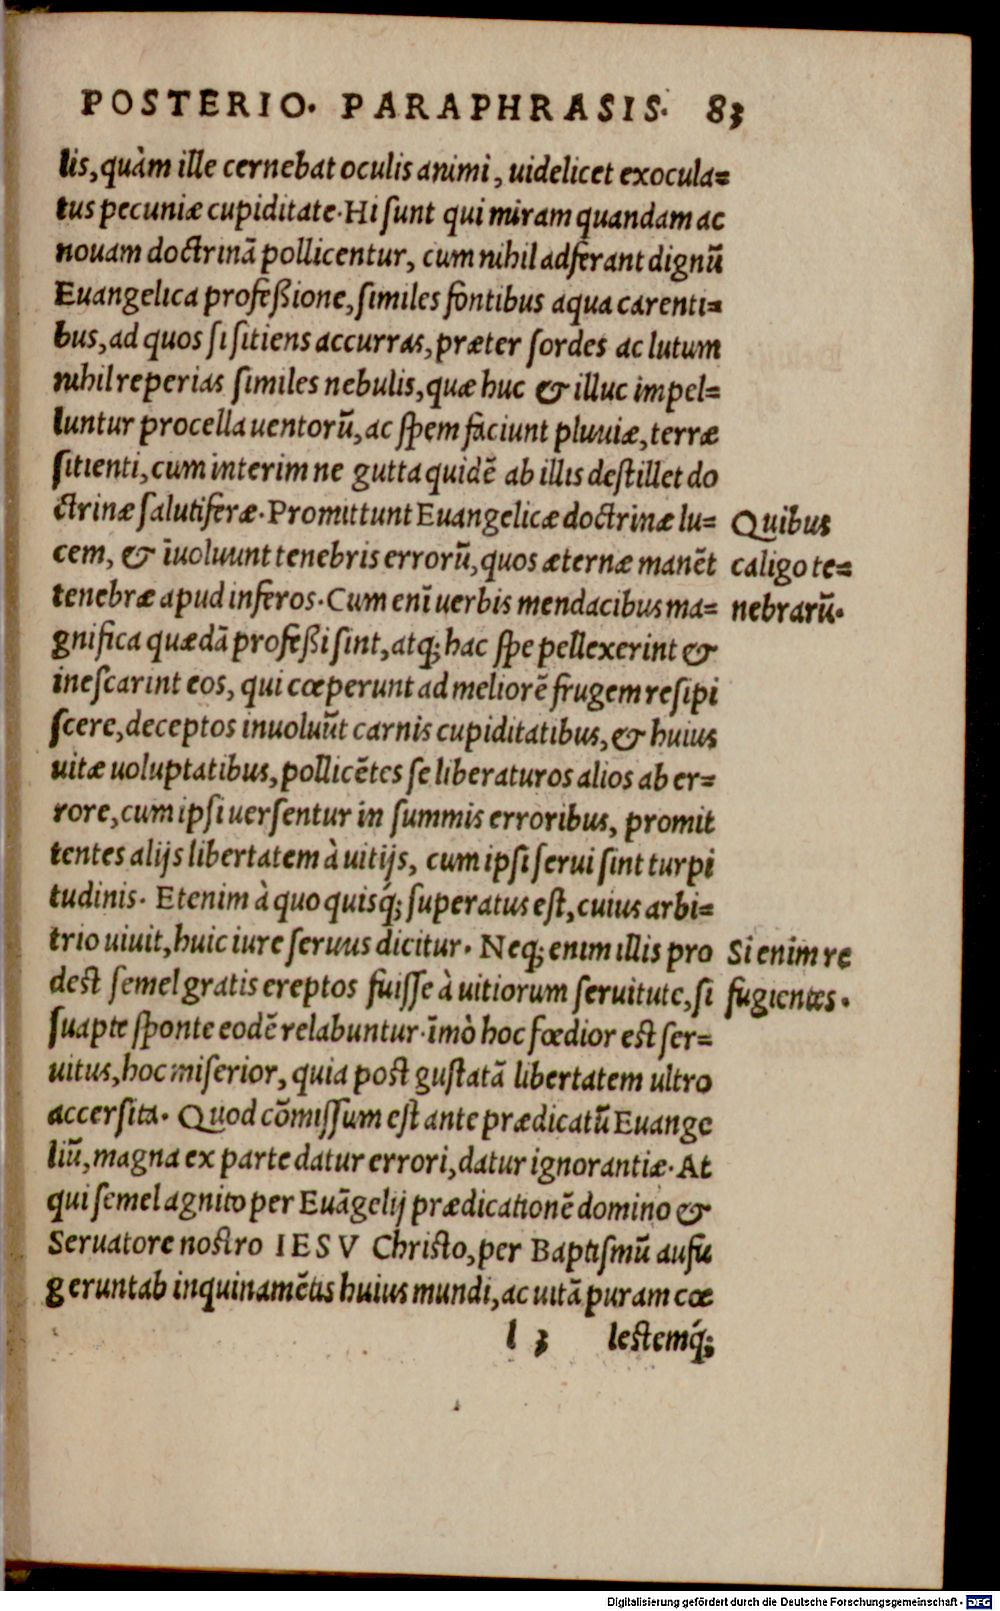 POSTERIO. PARAPHRASIS. 83
lis, quàm ille cernebat oculis animi, uidelicet exocula=
tus pecuniæ cupiditate. Hi sunt qui miram quandam ac
nouam doctrinã pollicentur, cum nihil adferant dignũ
Euangelica profeßione, similes fontibus aqua carenti=
bus, ad quos si sitiens accurras, præter sordes ac lutum
nihil reperias similes nebulis, quæ huc & illuc impel=
luntur procella uentorũ, ac spem faciunt pluuiæ, terræ
sitienti, cum interim ne gutta quidẽ ab illis destillet do
ctrinæ salutiferæ. Promittunt Euangelicæ doctrinæ lu=
cem, & ĩuoluunt tenebris errorũ, quos æternæ manẽt
tenebræ apud inferos. Cum enĩ uerbis mendacibus ma=
gnifica quædã profeßi sint, atq; hac spe pellexerint &
inescarint eos, qui cœperunt ad meliorẽ frugem resipi
scere, deceptos inuoluũt carnis cupiditatibus, & huius
uitæ uoluptatibus, pollicẽtes se liberaturos alios ab er=
rore, cum ipsi uersentur in summis erroribus, promit
tentes alijs libertatem à uitijs, cum ipsi serui sint turpi
tudinis. Etenim à quo quisq́; superatus est, cuius arbi=
trio uiuit, huic iure seruus dicitur. Neq; enim illis pro
dest semel gratis ereptos fuisse à uitiorum seruitute, si
suapte sponte eodẽ relabuntur. ĩmò hoc fœdior est ser=
uitus, hoc miserior, quia post gustatã libertatem ultro
accersita. Quod cõmissum est ante prædicatũ Euange
liũ, magna ex parte datur errori, datur ignorantiæ. At
qui semel agnito per Euãgelij prædicationẽ domino &
Seruatore nostro IESV Christo, per Baptismũ aufu
gerunt ab inquinamẽtis huius mundi, ac uitã puram cœ
l 3 lestemq́;
Quibus
caligo te=
nebrarũ.
Si enim re
fugientes.
Digitalisierung gefördert durch die Deutsche Forschungsgemeinschaft - DFG